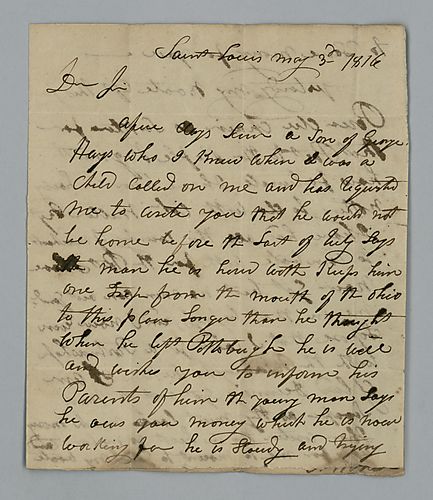 Saint Louis may 3d 1816
Dr Sr
a few days sinc a Son of George
Hays who I Knew when I was a
child called on me and has requested
me to write you that he would not
be home before the last of July Says
the man he is hird with Keeps him
one trip from the mouth of the Ohio
to this place longer than he thought
when he left Pittsburgh he is well
and wishes you to inform his
Parents of him the young man Says
he ows you money which he is now
working for he is Steady and trying